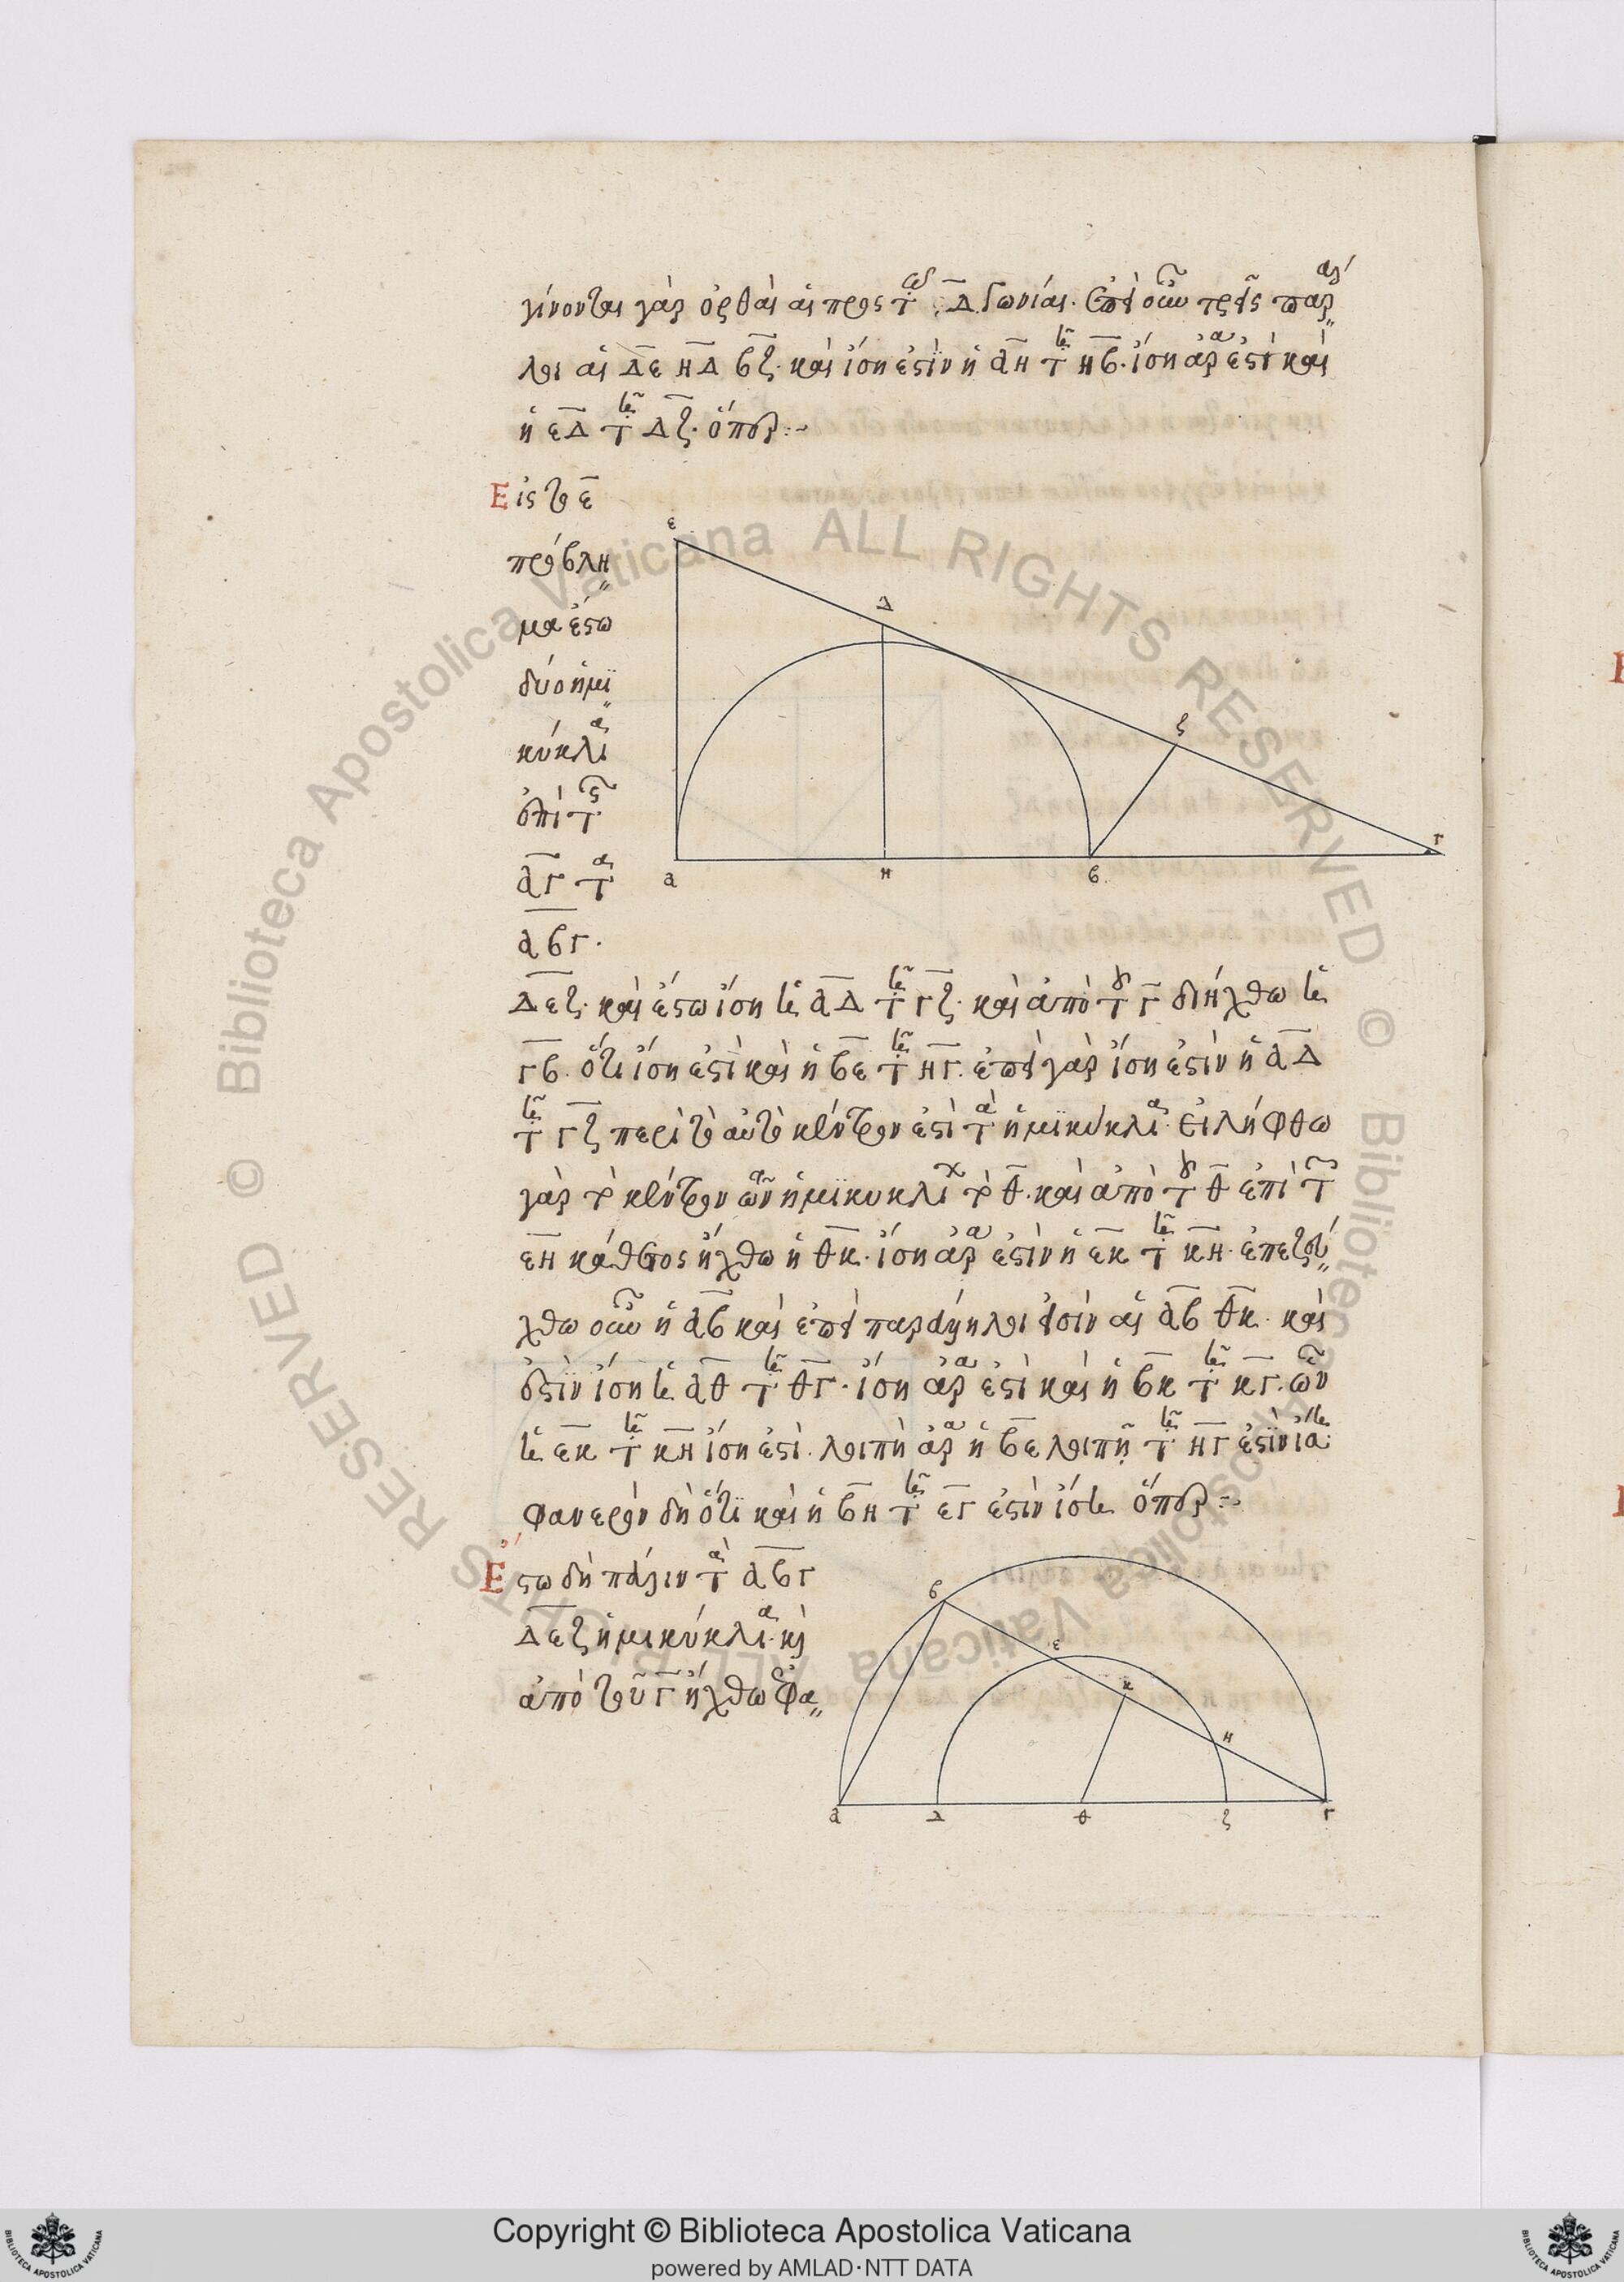 γίνονται γὰρ ὀρθαὶ αἱ πρὸς τῷ Δ γωνίαι. ἐπεὶ οὖν τρεῖς παράλ
ληλοι αἱ ΔΕ ΗΔ ΒΖ. καὶ ἴση ἐστὶν ἡ ΑΗ τῇ ΗΒ. ἴση ἄρα ἐστὶ καὶ
ἡ ΕΔ τῇ ΔΖ. ὅπερ :~
Εἰς τὸ ε
πρόβλη
μα ἔστω
δύο ἡμι
κύκλια
ἐπὶ τῆς
ΑΓ τὰ
ΑΒΓ.
ΔΕΖ. καὶ ἔστω ἴση ἡ ΑΔ τῇ ΓΖ. καὶ ἀπὸ τοῦ Γ διήχθω ἡ
ΓΒ. ὅτι ἴση ἐστὶ καὶ ἡ ΒΕ τῇ ΗΓ. ἐπεὶ γὰρ ἴση ἐστὶν ἡ ΑΔ
τῇ ΓΖ περὶ τὸ αὐτὸ κέντρον ἐστὶ τὰ ἡμικύκλια. εἰλήφθω
γὰρ τὸ κέντρον τῶν ἡμικυκλίων τὸ Θ. καὶ ἀπὸ τοῦ Θ ἐπὶ τὴν
ΕΗ κάθετος ἤχθω ἡ ΘΚ. ἴση ἄρα ἐστὶν ἡ ΕΚ τῇ ΚΗ. ἐπεζεύ
χθω οὖν ἡ ΑΒ καὶ ἐπεὶ παράλληλοι εἰσὶν αἱ ΑΒ ΘΚ. καὶ
ἐστὶν ἴση ἡ ΑΘ τῇ ΘΓ. ἴση ἄρα ἐστὶ καὶ ἡ ΒΚ τῇ ΚΓ. ὧν
ἡ ΕΚ τῇ ΚΗ ἴση ἐστί. λοιπὴ ἄρα ἡ ΒΕ λοιπῇ τῇ ΗΓ ἐστὶν ἴση
φανερὸν δὴ ὅτι καὶ ἡ ΒΗ τῇ ΕΓ ἐστὶν ἴση ὅπερ :~
Ἔστω δὴ πάλιν τὰ ΑΒΓ
ΔΕΖ ἡμικύκλια. καὶ
ἀπὸ τοῦ Γ ἤχθω ἐφα
ε
Δ
ζ
α
Η
β
Γ
β
ε
κ
Η
α
Δ
θ
ζ
Γ
Biblioteca Apostolica Vaticana ALL RIGHTS RESERVED ©
Biblioteca Apostolica Vaticana ALL RIGHTS RESERVED ©
Copyright © Biblioteca Apostolica Vaticana
powered by AMLAD·NTT DATA
BIBLIOTECA APOSTOLICA VATICANA
BIBLIOTECA APOSTOLICA VATICANA